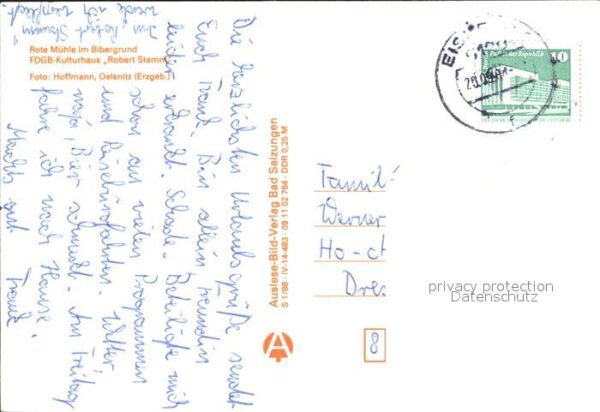 Rote Mühle im Bibergrund
FDGB-Kulturhaus „Robert Stamm“
Foto: Hoffmann, Oelsnitz (Erzgeb.)
Die herzlichsten Urlaubsgrüße sendet
Euch Traudl. Bin allein, Freundin
leider erkrankt. Schade. Beteilige mich
schon an vielen Programmen
und Wetter,
naja, Bier schmeckt. Am Freitag
fahre ich nach Hause.
Machts gut
Im „Robert Stamm“
werde ich verpflegt
Auslese-Bild-Verlag Bad Salzungen
S 1/88 · IV-14-483 · 09 11 02 764 · DDR 0,25 M
EIS
20.09.
Palast der Republik
10
Famil
Werner
Ho
Dre
privacy protection
Datenschutz
8
A